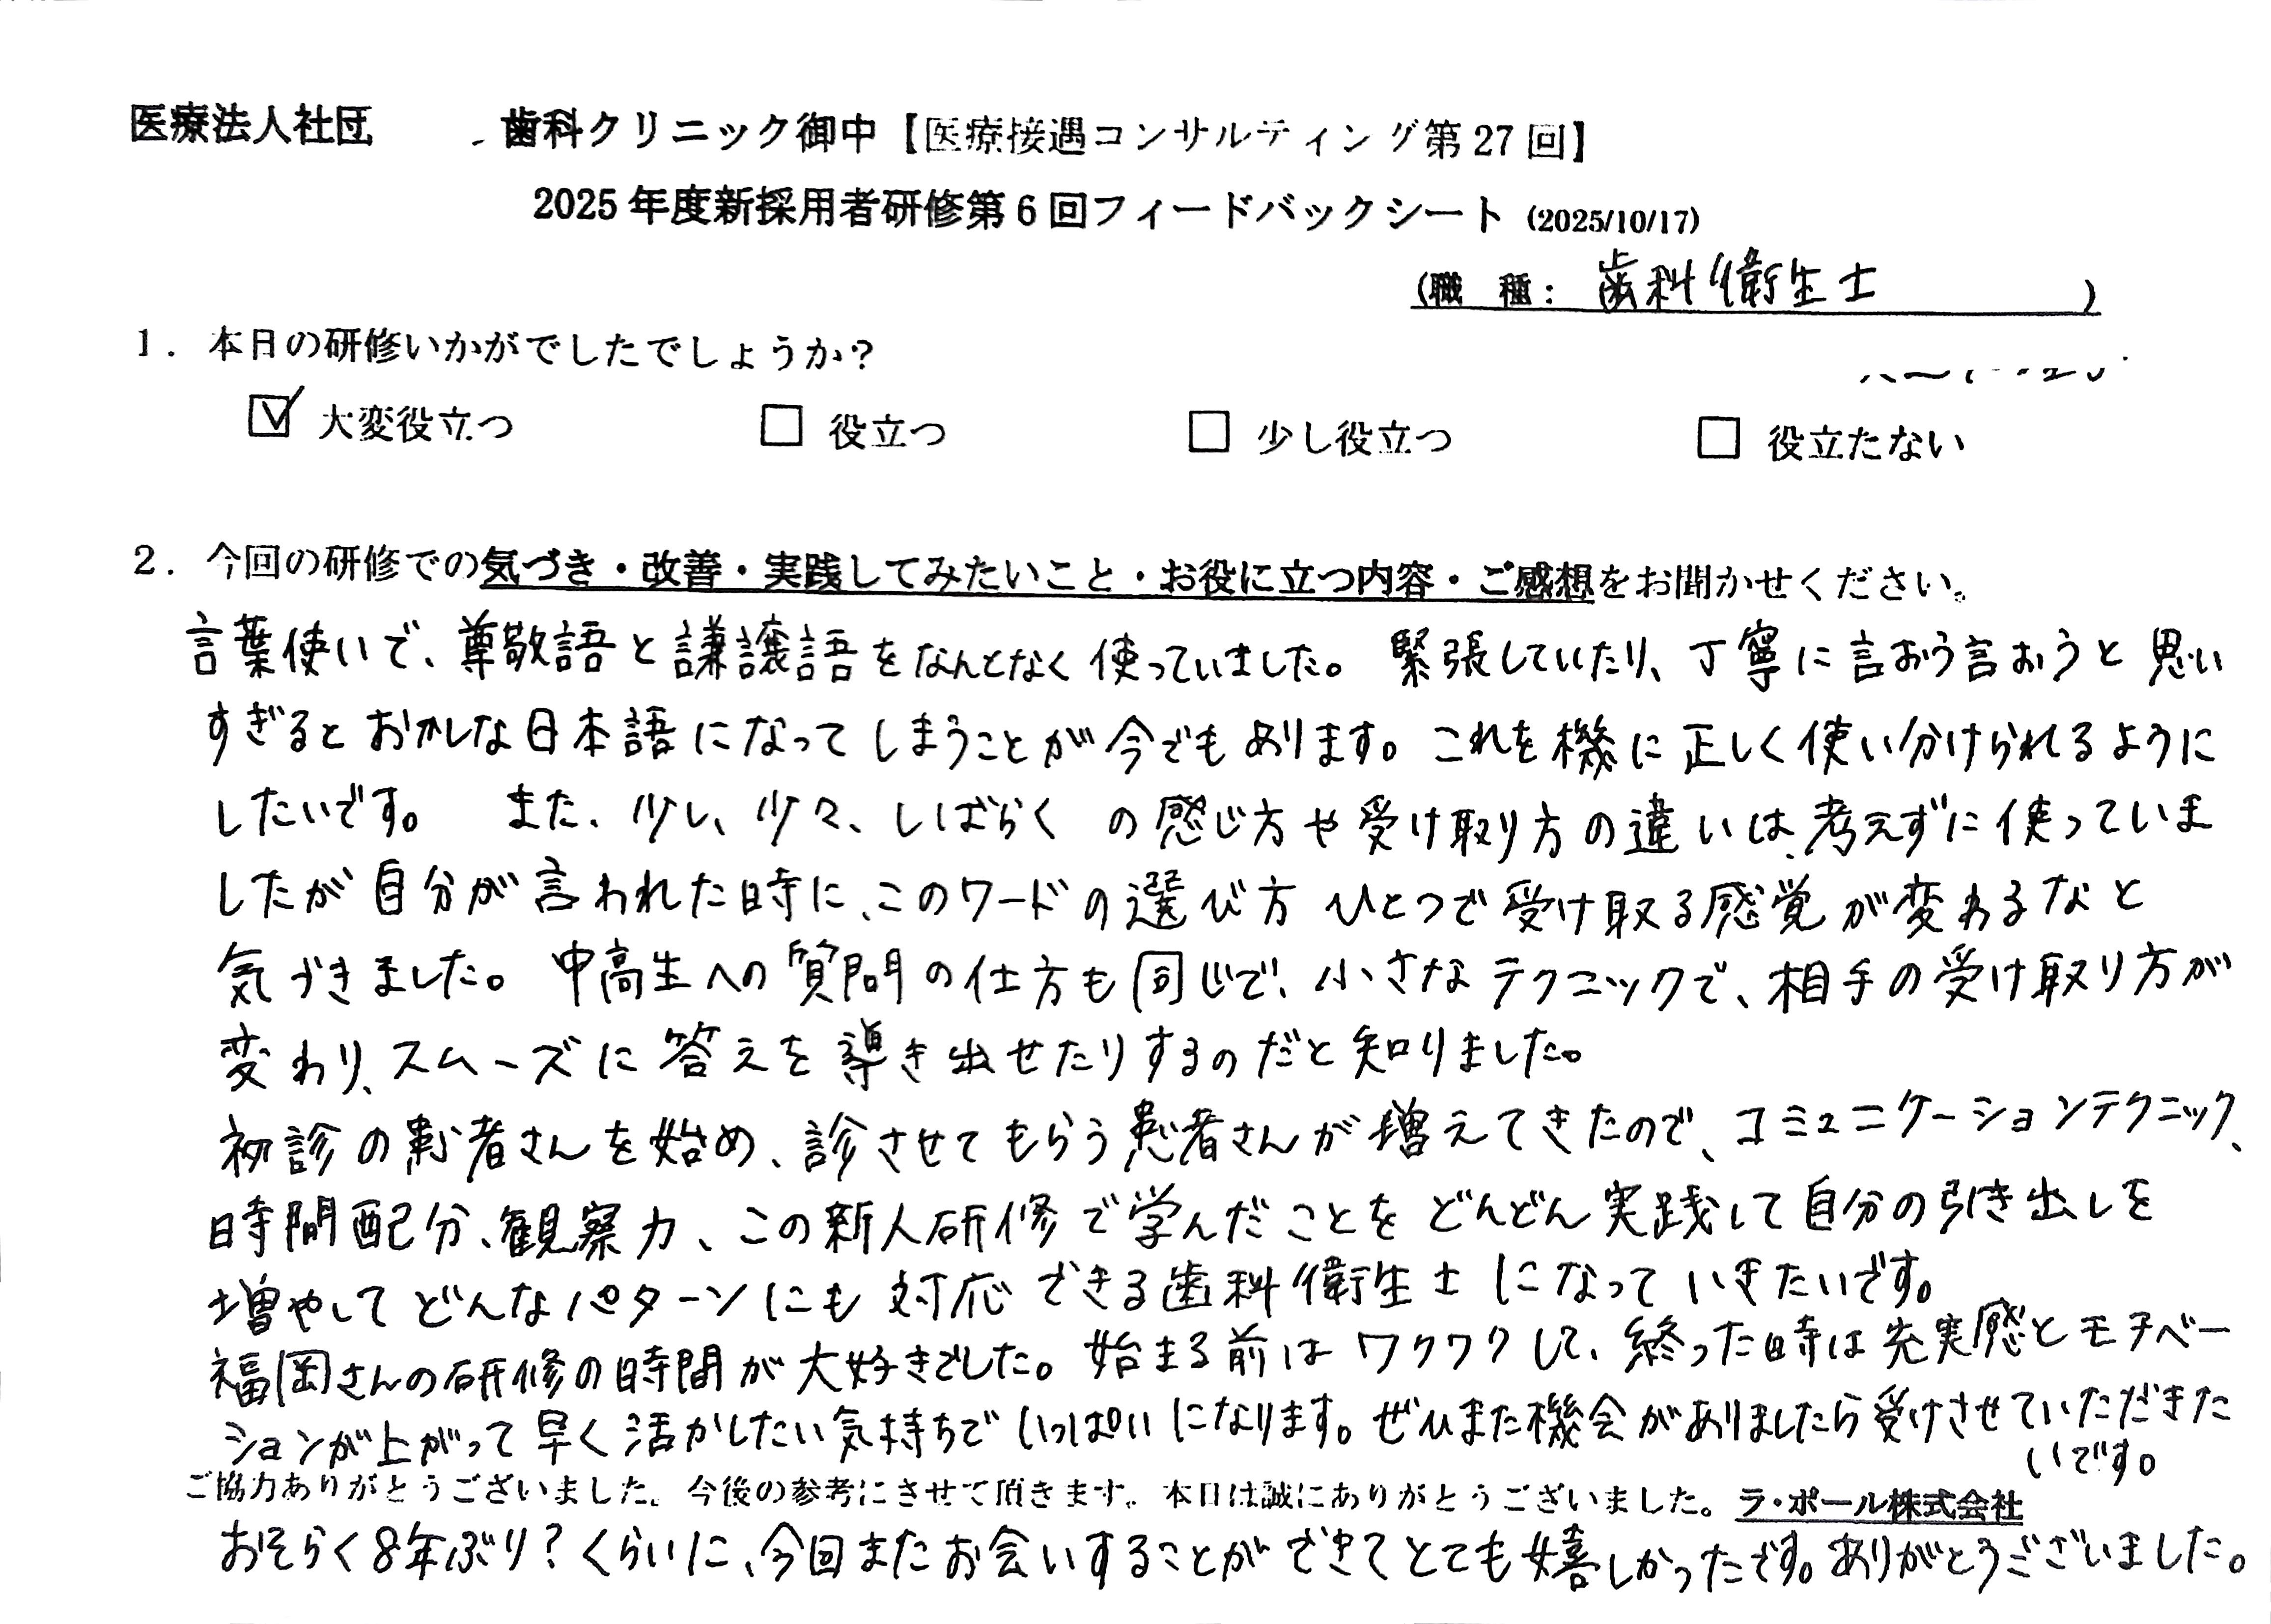 医療法人社団 歯科クリニック御中【医療接遇コンサルティング第27回】
2025年度新採用者研修第6回フィードバックシート (2025/10/17)
(職 種: 歯科衛生士 )
1. 本日の研修いかがでしたでしょうか?
☑ 大変役立つ □ 役立つ □ 少し役立つ □ 役立たない
2. 今回の研修での気づき・改善・実践してみたいこと・お役に立つ内容・ご感想をお聞かせください。
言葉使いで、尊敬語と謙譲語をなんとなく使っていました。緊張していたり、丁寧に言おう言おうと思い
すぎるとおかしな日本語になってしまうことが今でもあります。これを機に正しく使い分けられるように
したいです。 また、少し、少々、しばらく の感じ方や受け取り方の違いは、考えずに使っていま
したが自分が言われた時に、このワードの選び方ひとつで受け取る感覚が変わるなと
気づきました。中高生への質問の仕方も同じで、小さなテクニックで、相手の受け取り方が
変わり、スムーズに答えを導き出せたりするのだと知りました。
初診の患者さんを始め、診させてもらう患者さんが増えてきたので、コミュニケーションテクニック、
時間配分、観察力、この新人研修で学んだことをどんどん実践して自分の引き出しを
増やしてどんなパターンにも対応できる歯科衛生士になっていきたいです。
福岡さんの研修の時間が大好きでした。始まる前はワクワクして、終った時は充実感とモチベー
ションが上がって早く活かしたい気持ちでいっぱいになります。ぜひまた機会がありましたら受けさせていただきた
いです。
ご協力ありがとうございました。今後の参考にさせて頂きます。本日は誠にありがとうございました。ラ・ポール株式会社
おそらく8年ぶり?くらいに、今回またお会いすることができてとても嬉しかったです。ありがとうございました。